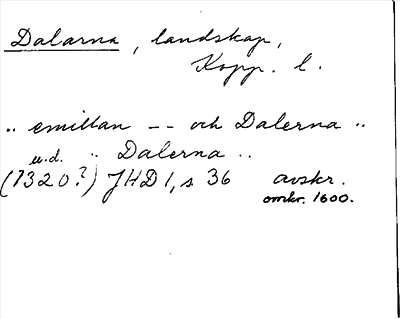 Dalarna, landskap,
Kopp. l.
.. emillan -- och Dalerna ..
u.d. .. Dalerna ..
(1320?) JHD 1, s 36 avskr.
omkr. 1600.